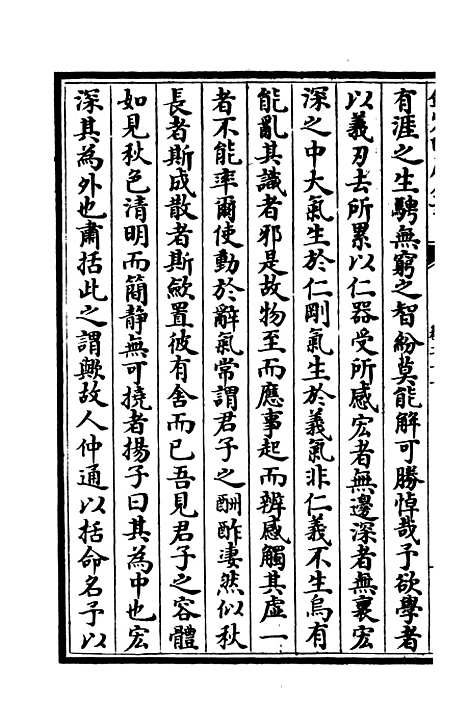 有涯之生騁無窮之智紛莫能解可勝悼哉予欲學者
以義刃去所累以仁器受所感宏者無邊深者無裏宏
深之中大氣生於仁剛氣生於義氣非仁義不生烏有
能亂其識者邪是故物至而應事起而辨感觸其虛一
者不能率爾使動於辭氣常謂君子之酬酢淒然似秋
長者斯成散者斯斂置彼有舍而已吾見君子之容體
如見秋色清明而簡靜無可撓者揚子曰其為中也宏
深其為外也肅括此之謂歟故人仲通以括命名予以